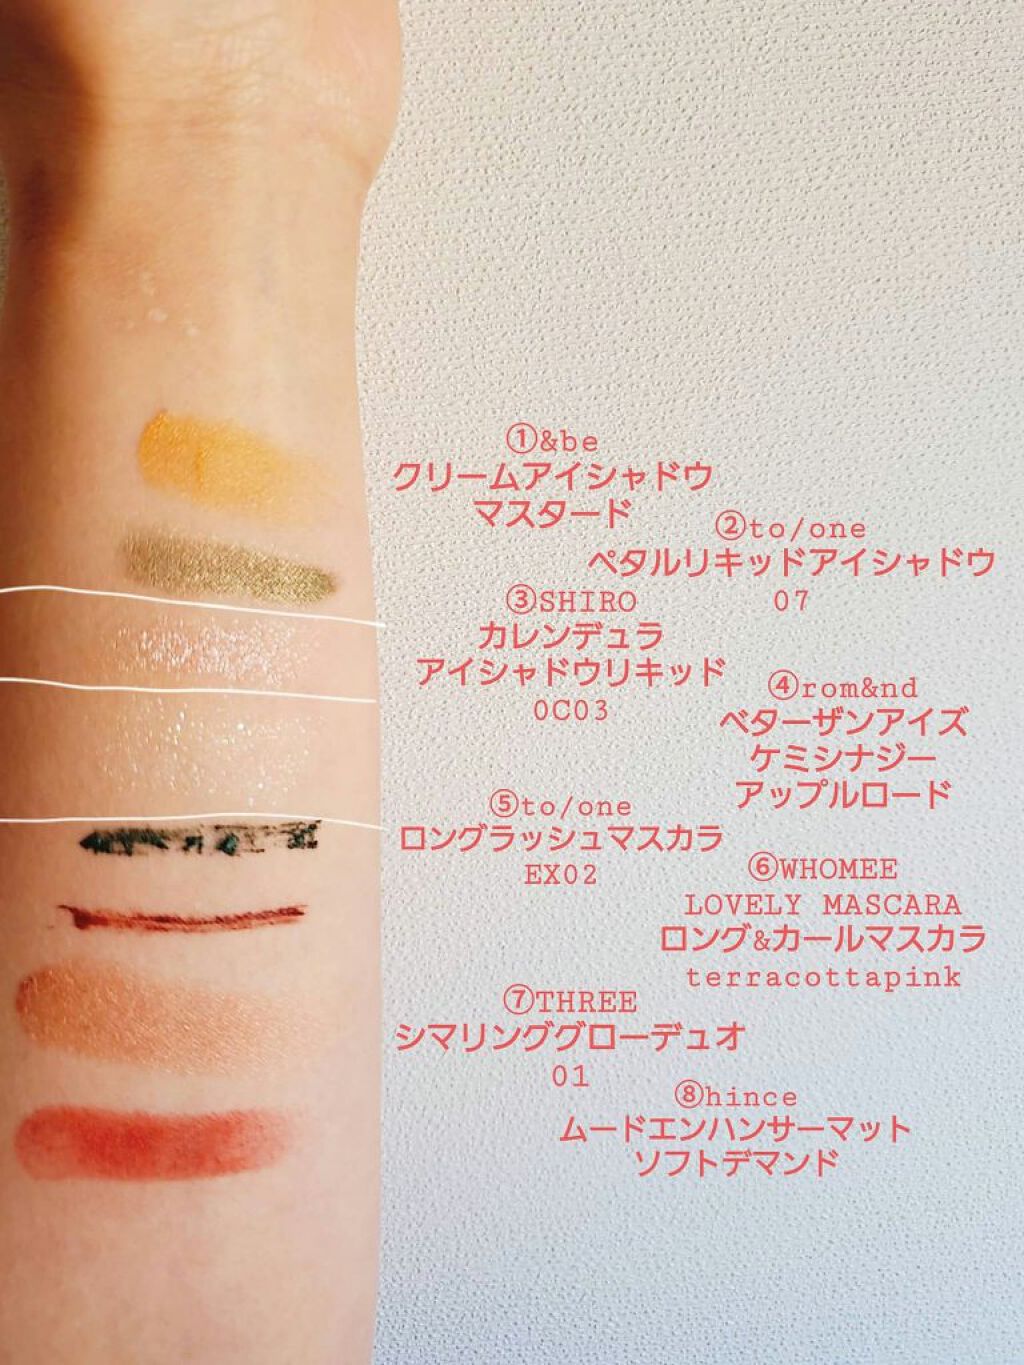 ①&be
クリームアイシャドウ
マスタード
②to/one
ペタルリキッドアイシャドウ
07
③SHIRO
カレンデュラ
アイシャドウリキッド
0C03
④rom&nd
ベターザンアイズ
ケミシナジー
アップルロード
⑤to/one
ロングラッシュマスカラ
EX02
⑥WHOMEE
LOVELY MASCARA
ロング&カールマスカラ
terracottapink
⑦THREE
シマリンググローデュオ
01
⑧hince
ムードエンハンサーマット
ソフトデマンド